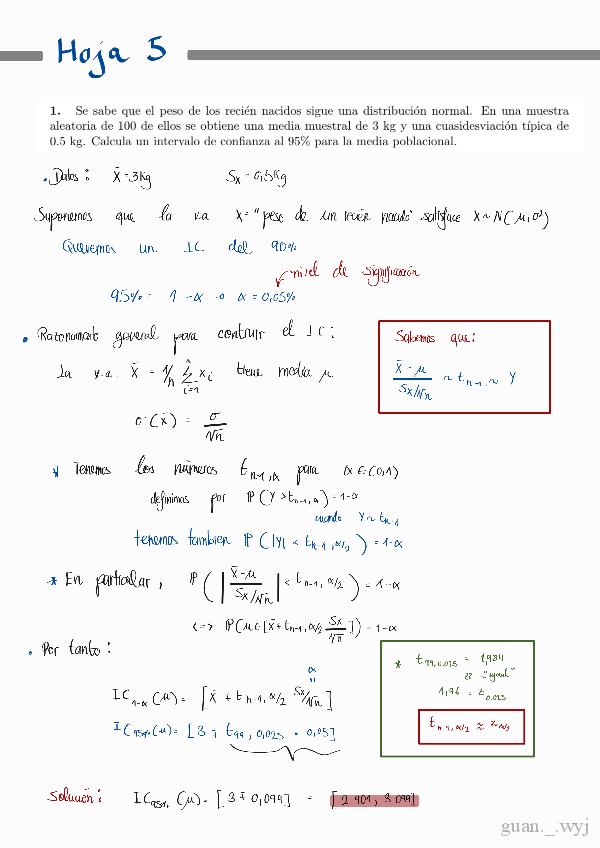 Hoja 5
1. Se sabe que el peso de los recién nacidos sigue una distribución normal. En una muestra
aleatoria de 100 de ellos se obtiene una media muestral de 3 kg y una cuasidesviación típica de
0.5 kg. Calcula un intervalo de confianza al 95% para la media poblacional.
• Datos: X̄=3Kg Sx=0,5Kg
Suponemos que la v.a X="peso de un recién nacido" satisface X~N(μ,σ)
Queremos un IC del 90%
nivel de significación
95% = 1-α → α = 0,05%
• Razonamiento general para contruir el IC:
Sabemos que:
la v.a. X̄ = 1/n Σ_{i=1}^{n} x_i tiene media μ
(X̄-μ)/(Sx/√n) ~ t_{n-1} ~ Y
σ(X̄) = σ/√n
* Tenemos los números t_{n-1,α} para α∈(0,1)
definimos por P(Y>t_{n-1,α})=1-α
cuando Y~t_{n-1}
tenemos tambien P(|Y| < t_{n-1,α/2}) = 1-α
* En particular, P(|(X̄-μ)/(Sx/√n)| < t_{n-1,α/2}) = 1-α
<=> P(μ∈[X̄∓t_{n-1,α/2} Sx/√n]) = 1-α
• Por tanto:
* t_{99,0.025} = 1,984
≈ "igual"
1,96 = z_{0.025}
t_{n-1,α/2} ≈ z_{α/2}
IC_{1-α}(μ) = [X̄ ∓ t_{n-1,α/2} Sx/√n]
IC_{95%}(μ) = [3 ∓ t_{99,0,025} · 0,05]
Solución: IC_{95%}(μ) = [3∓0,099] = [2.901, 3.099]
guan._.wyj